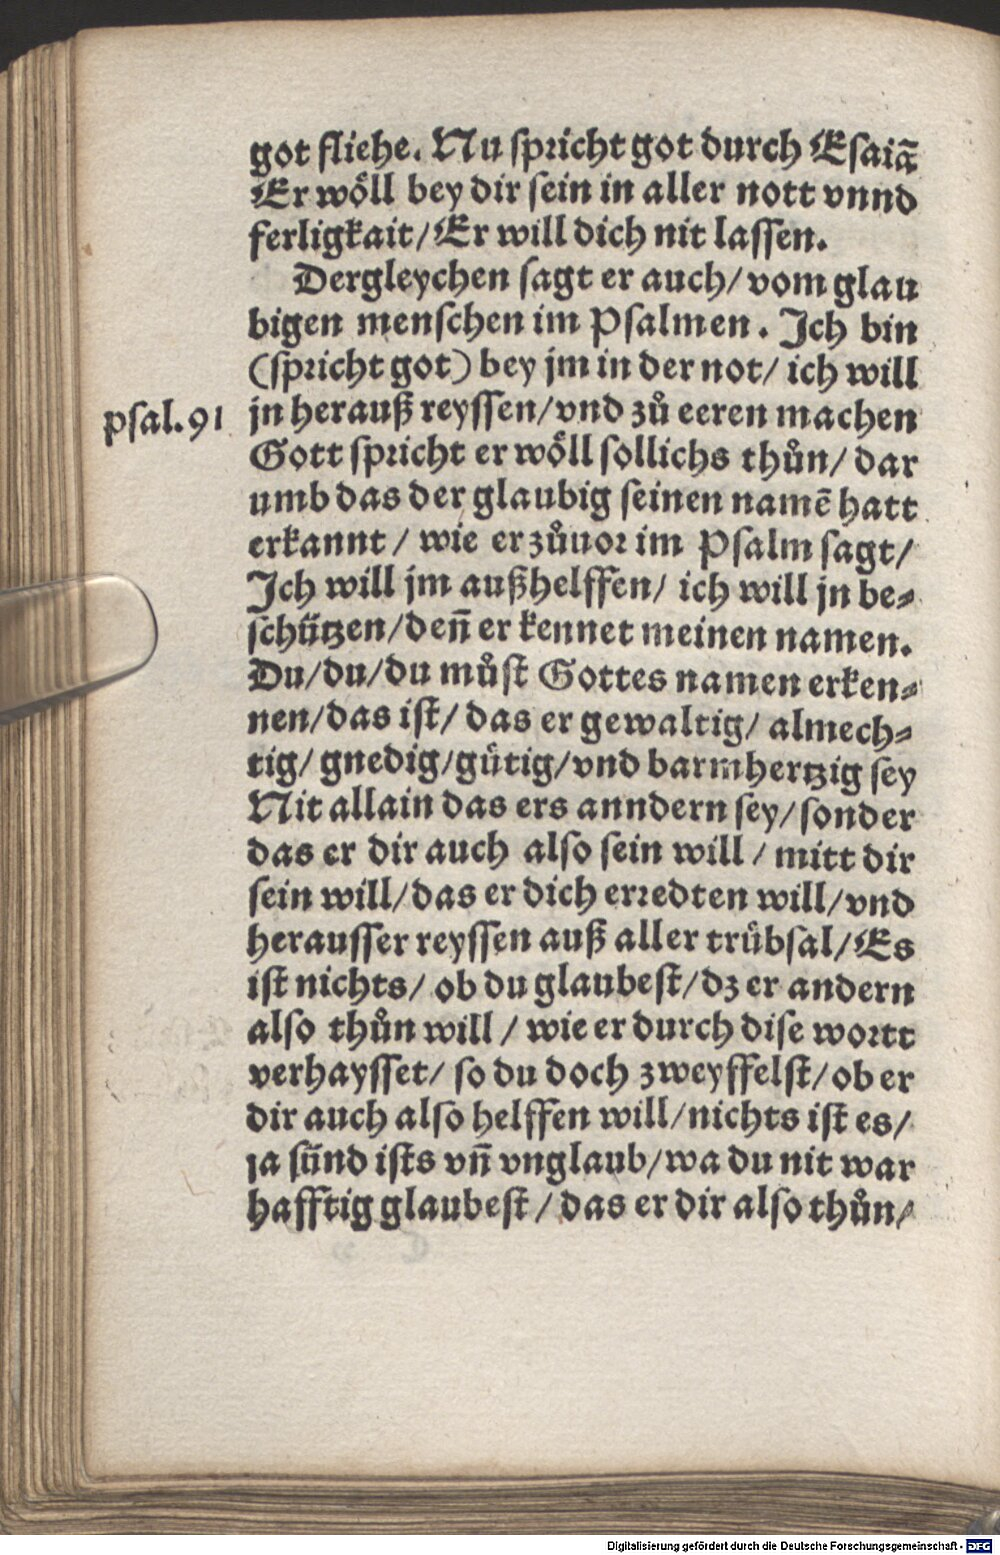 got fliehe. Nu spricht got durch Esaiā
Er wöll bey dir sein in aller nott vnnd
ferligkait/ Er will dich nit lassen.
Dergleychen sagt er auch/ vom glau
bigen menschen im Psalmen. Ich bin
(spricht got) bey jm in der not/ ich will
psal.91 jn herauß reyssen/ vnd zů eeren machen
Gott spricht er wöll sollichs thůn/ dar
umb das der glaubig seinen namē hatt
erkannt/ wie er zůuor im Psalm sagt/
Ich will jm außhelffen/ ich will jn be⸗
schützen/ deñ er kennet meinen namen.
Du/ du/ du můst Gottes namen erken⸗
nen/ das ist/ das er gewaltig/ almech⸗
tig/ gnedig/ gütig/ vnd barmhertzig sey
Nit allain das ers anndern sey/ sonder
das er dir auch also sein will/ mitt dir
sein will/ das er dich erredten will/ vnd
herausser reyssen auß aller trübsal/ Es
ist nichts/ ob du glaubest/ dz er andern
also thůn will/ wie er durch dise wortt
verhaysset/ so du doch zweyffelst/ ob er
dir auch also helffen will/ nichts ist es/
ja sünd ists vñ vnglaub/ wa du nit war
hafftig glaubest/ das er dir also thůn/
Digitalisierung gefördert durch die Deutsche Forschungsgemeinschaft - DFG